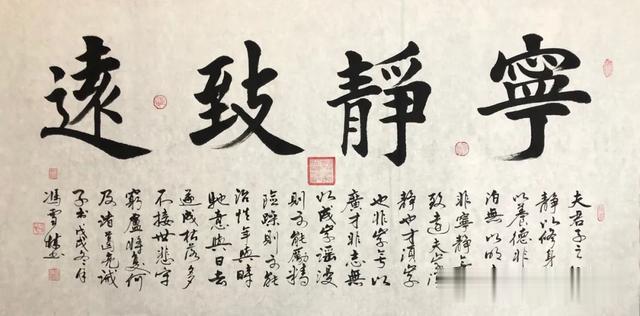 寧靜致遠
夫君子之
靜以修身
以養德非
泊無以明
非寧靜無
致遠夫學
靜也才須學
也非學無以
廣才非志無
以成學漫
則不能勵精
險躁則不能
治性年與時
馳意與日去
遂成枯落多
不接世悲守
窮廬將復何
及諸葛亮誡
子書戊戌冬月
馮雪林書